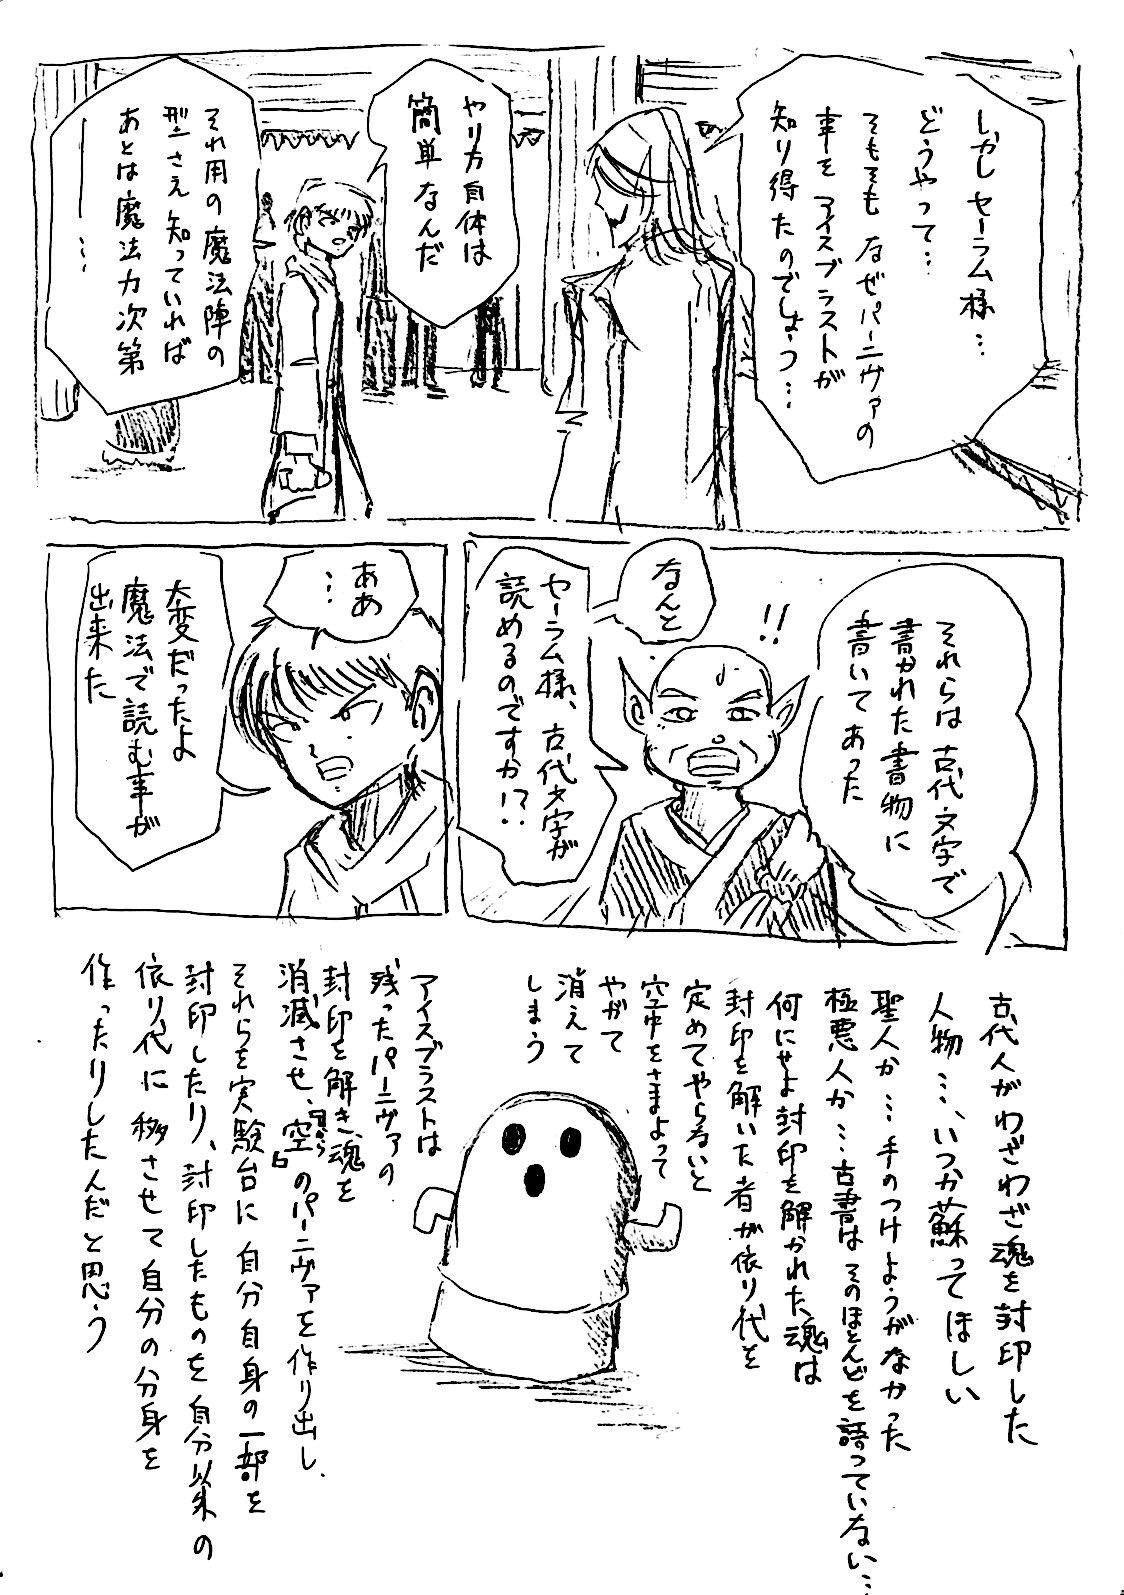 しかしセーラム様…
どうやって…
そもそもなぜパーニヴァの
事をアイスブラストが
知り得たのでしょう…
やり方自体は
簡単なんだ
それ用の魔法陣の
型さえ知っていれば
あとは魔法力次第
――…
それらは古代文字で
書かれた書物に
書いてあった
!!
なんと
セーラム様、古代文字が
読めるのですか!?
ああ
…
大変だったよ
魔法で読む事が
出来た
古代人がわざわざ魂を封印した
人物…、いつか蘇ってほしい
聖人か…手のつけようがなかった
極悪人か…古書はそのほとんどを語っていない…
何にせよ封印を解かれた魂は
封印を解いた者が依り代を
定めてやらないと
空中をさまよって
やがて
消えて
しまう
アイスブラストは
残ったパーニヴァの
封印を解き、魂を
消滅させ、空のパーニヴァを作り出し、
それらを実験台に自分自身の一部を
封印したり、封印したものを自分以来の
依り代に移させて自分の分身を
作ったりしたんだと思う